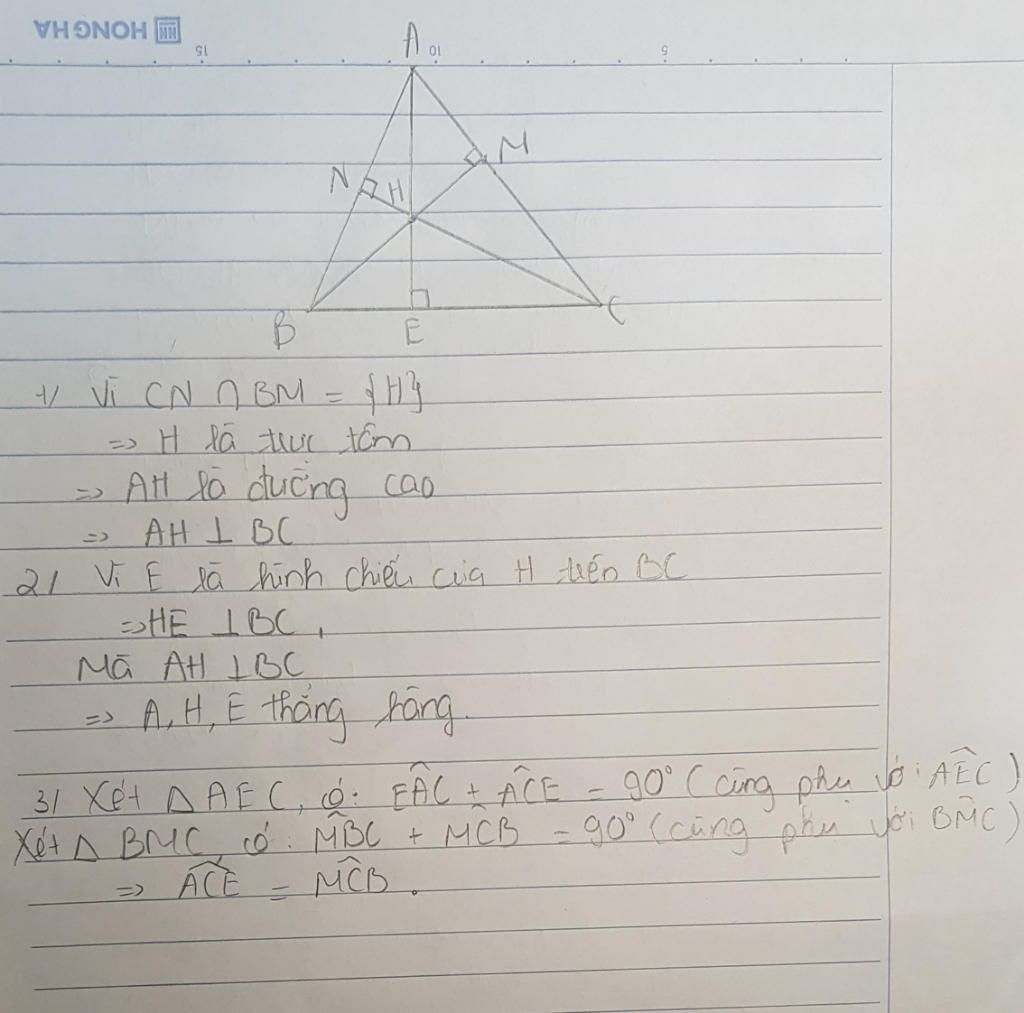 HONG HA
15
10
5
A
M
N
H
B
E
C
1/ Vì CN ∩ BM = {H}
=> H là trực tâm
=> AH là đường cao
=> AH ⊥ BC
2/ Vì E là hình chiếu của H trên BC
=> HE ⊥ BC,
Mà AH ⊥ BC
=> A, H, E thẳng hàng.
3/ Xét △ AEC, có: EÂC + AĈE = 90° (cùng phụ với AÊC)
Xét △ BMC, có: MB̂C + MĈB = 90° (cùng phụ với BM̂C)
=> AĈE = MĈB.